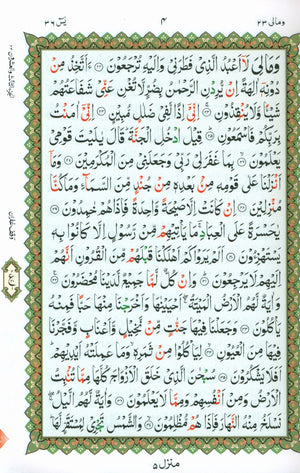 ومالى ٢٣
٤
يٰسٓ ٣٦
وَمَالِىَ لَآ اَعْبُدُ الَّذِىْ فَطَرَنِىْ وَاِلَيْهِ تُرْجَعُوْنَ ءَاَتَّخِذُ مِنْ
دُوْنِهٖٓ اٰلِهَةً اِنْ يُّرِدْنِ الرَّحْمٰنُ بِضُرٍّ لَّا تُغْنِ عَنِّىْ شَفَاعَتُهُمْ
شَيْـًٔا وَّلَا يُنْقِذُوْنِ اِنِّىْٓ اِذًا لَّفِىْ ضَلٰلٍ مُّبِيْنٍ اِنِّىْٓ اٰمَنْتُ
بِرَبِّكُمْ فَاسْمَعُوْنِ قِيْلَ ادْخُلِ الْجَنَّةَ قَالَ يٰلَيْتَ قَوْمِىْ
يَعْلَمُوْنَ بِمَا غَفَرَلِىْ رَبِّىْ وَجَعَلَنِىْ مِنَ الْمُكْرَمِيْنَ وَمَآ
اَنْزَلْنَا عَلٰى قَوْمِهٖ مِنْۢ بَعْدِهٖ مِنْ جُنْدٍ مِّنَ السَّمَآءِ وَمَا كُنَّا
مُنْزِلِيْنَ اِنْ كَانَتْ اِلَّا صَيْحَةً وَّاحِدَةً فَاِذَا هُمْ خٰمِدُوْنَ
يٰحَسْرَةً عَلَى الْعِبَادِ مَا يَاْتِيْهِمْ مِّنْ رَّسُوْلٍ اِلَّا كَانُوْا بِهٖ
يَسْتَهْزِءُوْنَ اَلَمْ يَرَوْا كَمْ اَهْلَكْنَا قَبْلَهُمْ مِّنَ الْقُرُوْنِ اَنَّهُمْ
اِلَيْهِمْ لَا يَرْجِعُوْنَ وَاِنْ كُلٌّ لَّمَّا جَمِيْعٌ لَّدَيْنَا مُحْضَرُوْنَ
وَاٰيَةٌ لَّهُمُ الْاَرْضُ الْمَيْتَةُ اَحْيَيْنٰهَا وَاَخْرَجْنَا مِنْهَا حَبًّا فَمِنْهُ
يَاْكُلُوْنَ وَجَعَلْنَا فِيْهَا جَنّٰتٍ مِّنْ نَّخِيْلٍ وَّاَعْنَابٍ وَّفَجَّرْنَا
فِيْهَا مِنَ الْعُيُوْنِ لِيَاْكُلُوْا مِنْ ثَمَرِهٖ وَمَا عَمِلَتْهُ اَيْدِيْهِمْ
اَفَلَا يَشْكُرُوْنَ سُبْحٰنَ الَّذِىْ خَلَقَ الْاَزْوَاجَ كُلَّهَا مِمَّا تُنْۢبِتُ
الْاَرْضُ وَمِنْ اَنْفُسِهِمْ وَمِمَّا لَا يَعْلَمُوْنَ وَاٰيَةٌ لَّهُمُ الَّيْلُ
نَسْلَخُ مِنْهُ النَّهَارَ فَاِذَا هُمْ مُّظْلِمُوْنَ وَالشَّمْسُ تَجْرِىْ لِمُسْتَقَرٍّ لَّهَا
منزل ٥